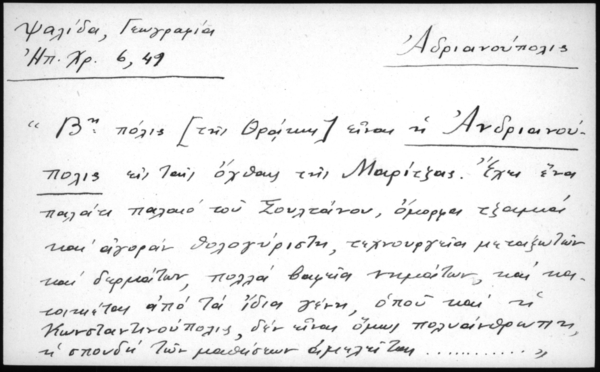 Ψαλίδα, Γεωγραφία
Ἠπ. Χρ. 6, 49
Ἀδριανούπολις
" Βα πόλις [τῆς Θράκης] εἶναι ἡ Ἀνδριανού-
πολις εἰς ταῖς ὄχθαις τῆς Μαρίτζας. Ἔχει ἕνα
παλάτι παλαιὸ τοῦ Σουλτάνου, ὄμορφα τζαμιά
καὶ ἀγορὰν θολογύριστη, τεχνουργεῖα μεταξωτῶν
καὶ δερμάτων, πολλὰ βαφεῖα νημάτων, καὶ κα-
τοικιέται ἀπὸ τὰ ἴδια γένη, ὁποῦ καὶ ἡ
Κωνσταντινούπολις, δέν εἶναι ὅμως πολυάνθρωπη,
ἡ σπουδὴ τῶν μαθήσεων ἀμελεῖται ............ "